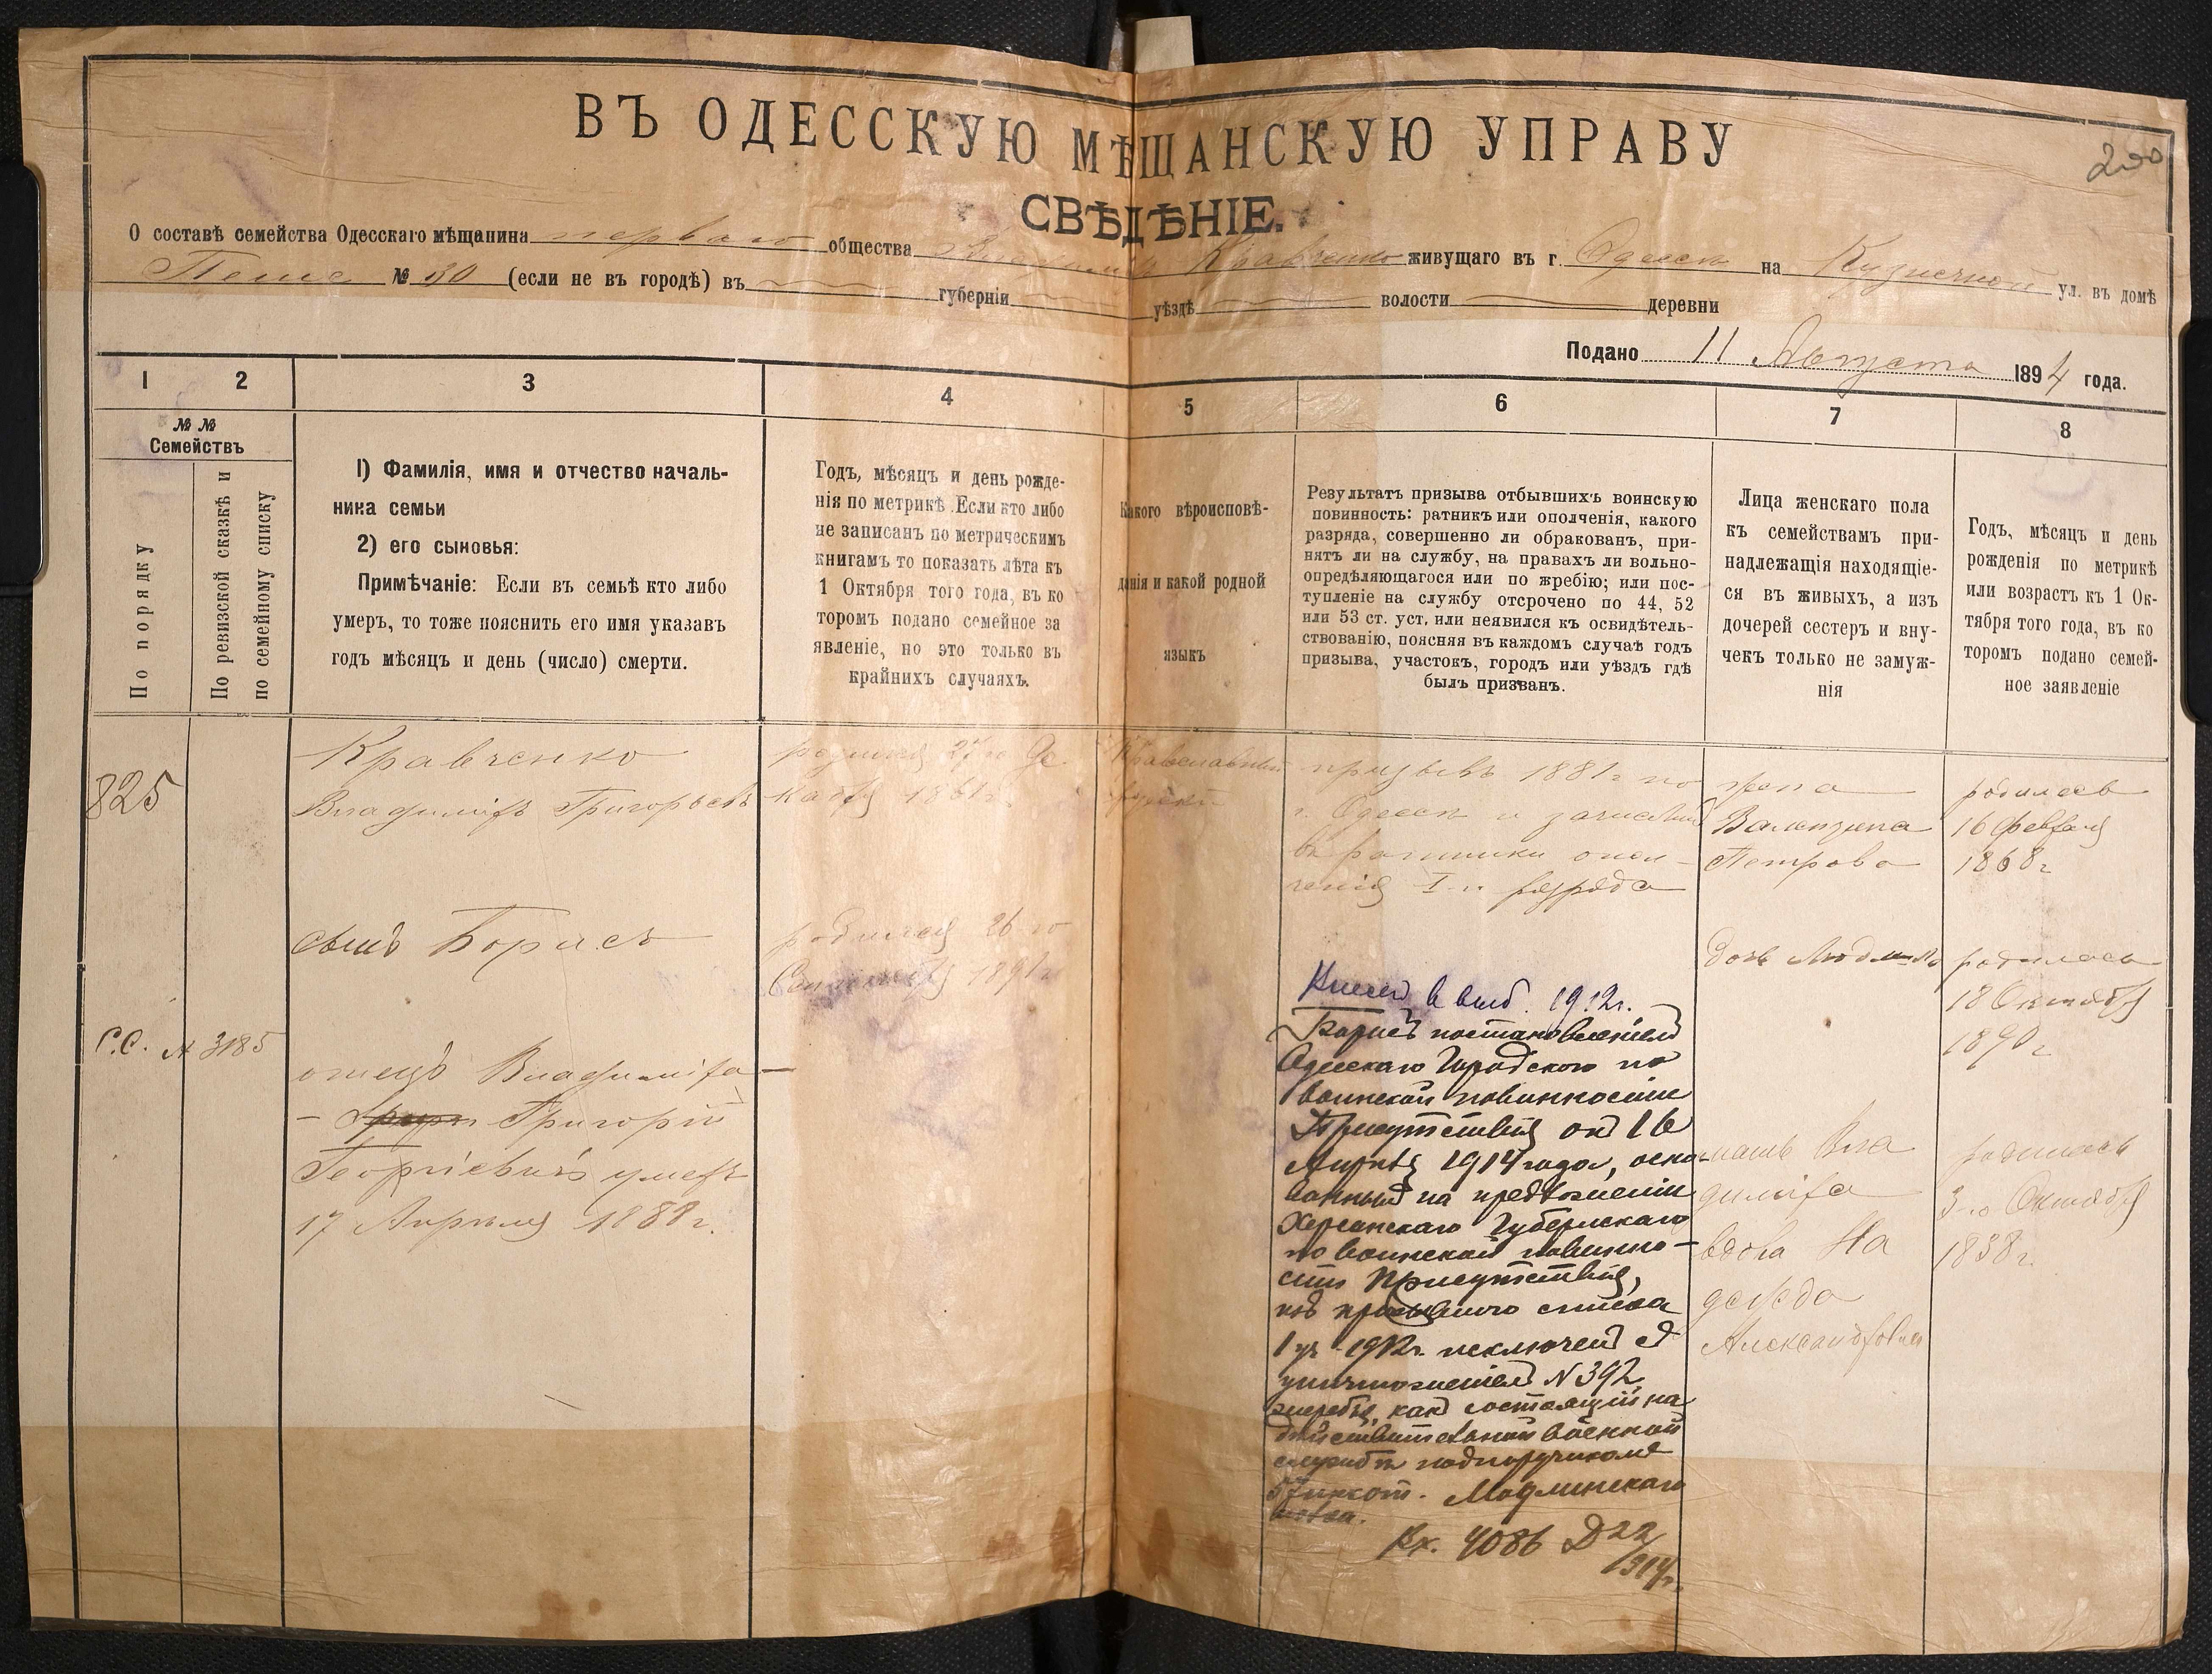 200
ВЪ ОДЕССКУЮ МѢЩАНСКУЮ УПРАВУ
СВѢДѢНІЕ.
О составѣ семейства Одесскаго мѣщанина перваго общества Владиміра Кравченко живущаго въ г. Одессѣ на Кузнечной ул. въ домѣ
№ 30 (если не въ городѣ) въ губерніи уѣздѣ волости деревни
Подано 11 Августа 1894 года.
1
2
3
4
5
6
7
8
№ №
Семействъ
По порядку
По ревизской сказкѣ и
по семейному списку
1) Фамилія, имя и отчество началь-
ника семьи
2) его сыновья:
Примѣчаніе: Если въ семьѣ кто либо
умеръ, то тоже пояснить его имя указавъ
годъ мѣсяцъ и день (число) смерти.
Годъ, мѣсяцъ и день рожде-
нія по метрикѣ Если кто либо
не записанъ по метрическимъ
книгамъ то показать лѣта къ
1 Октября того года, въ ко
торомъ подано семейное за
явленіе, но это только въ
крайнихъ случаяхъ.
Какого вѣроисповѣ-
данія и какой родной
языкъ
Результатъ призыва отбывшихъ воинскую
повинность: ратникъ или ополченія, какого
разряда, совершенно ли обракованъ, при-
нятъ ли на службу, на правахъ ли вольно-
опредѣляющагося или по жребію; или пос-
тупленіе на службу отсрочено по 44, 52
или 53 ст. уст. или неявился къ освидѣтель-
ствованію, поясняя въ каждомъ случаѣ годъ
призыва, участокъ, городъ или уѣздъ гдѣ
былъ призванъ.
Лица женскаго пола
къ семействамъ при-
надлежащія находящіе-
ся въ живыхъ, а изъ
дочерей сестеръ и вну-
чекъ только не замуж-
нія
Годъ, мѣсяцъ и день
рожденія по метрикѣ
или возрастъ къ 1 Ок-
тября того года, въ ко
торомъ подано семей-
ное заявленіе
825
С.С. № 3185
Кравченко
Владиміръ Григорьевъ
сынъ Борисъ
отецъ Владиміра
— Григорій
Георгіевичъ умеръ
17 Апрѣля 1888 г.
родился 27го Де-
кабря 1861 г.
родился 26 го
Сентября 1891 г.
Православный
русскій
призывъ 1881 г по
г. Одессѣ и зачисленъ
въ ратники опол-
ченія I-го разряда
1912 г.
Борисъ постановленіемъ
Одесскаго Городского по
воинской повинности
Присутствія отъ 16
Апрѣля 1914 года, осно-
ваннымъ на предложеніи
Херсонскаго Губернскаго
по воинской повинно-
сти Присутствія,
изъ призывного списка
1 уч. 1912 г. исключенъ съ
уничтоженіемъ № 392
жеребья, какъ состоящій на
дѣйствительной военной
службѣ подпоручикомъ
57 пѣхот. Модлинскаго
полка.
Вх. 4086 Д 22/914 г.
жена
Валентина
Петрова
дочь Людмила
мать Вла
диміра
вдова На
дежда
Александровна
родилась
16 Февраля
1868 г
родилась
18 Октября
1890 г
родилась
3-го Октября
1838 г.